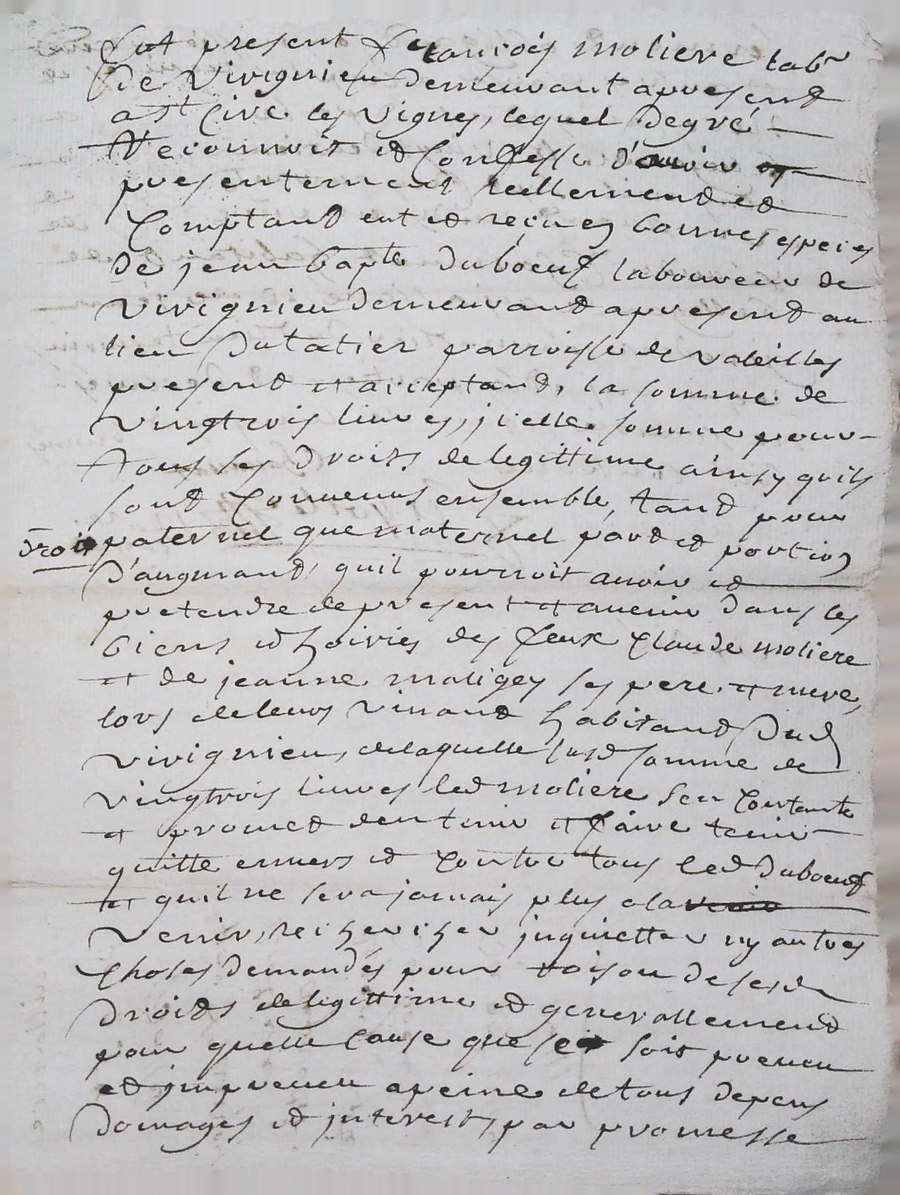 fut present francois moliere labr
de vivignieu demeurant apresent
a st Cive les vignes, lequel de gré
reconnoit et Confesse d'avoir
presentement reellement et
Comptant eut et reçu en bonnes especes
de jean bapte duboeuf laboureur de
vivignieu demeurant apresent au
lieu du tatier parroisse de valeilles
present et acceptant, la somme de
vingtrois livres, jcelle somme pour
tous ses droits de legittime ainsy quils
sont Convenus ensemble, tant pour
droit paternel que maternel part et portion
d'augmant, quil pourroit avoir et
pretendre de present et avenir dans les
biens et hoiries des feux Claude moliere
et de jeanne maligey ses pere et mere,
lors de leurs vivant habitant dud
vivignieu, de laquelle susd somme de
vingtrois livres led moliere sen Contante
et promet den tenir et faire tenir
quitte envers et Contre tous led duboeuf
et quil ne sera jamais plus a la
venir, rechercher jnquietter ny autres
Choses demandés pour raison de sesd
droits de legittime et generallement
pour quelle Cause que se soit preveu
et jmpreveu a peine de tous depens
domages et jnterests, par promesse